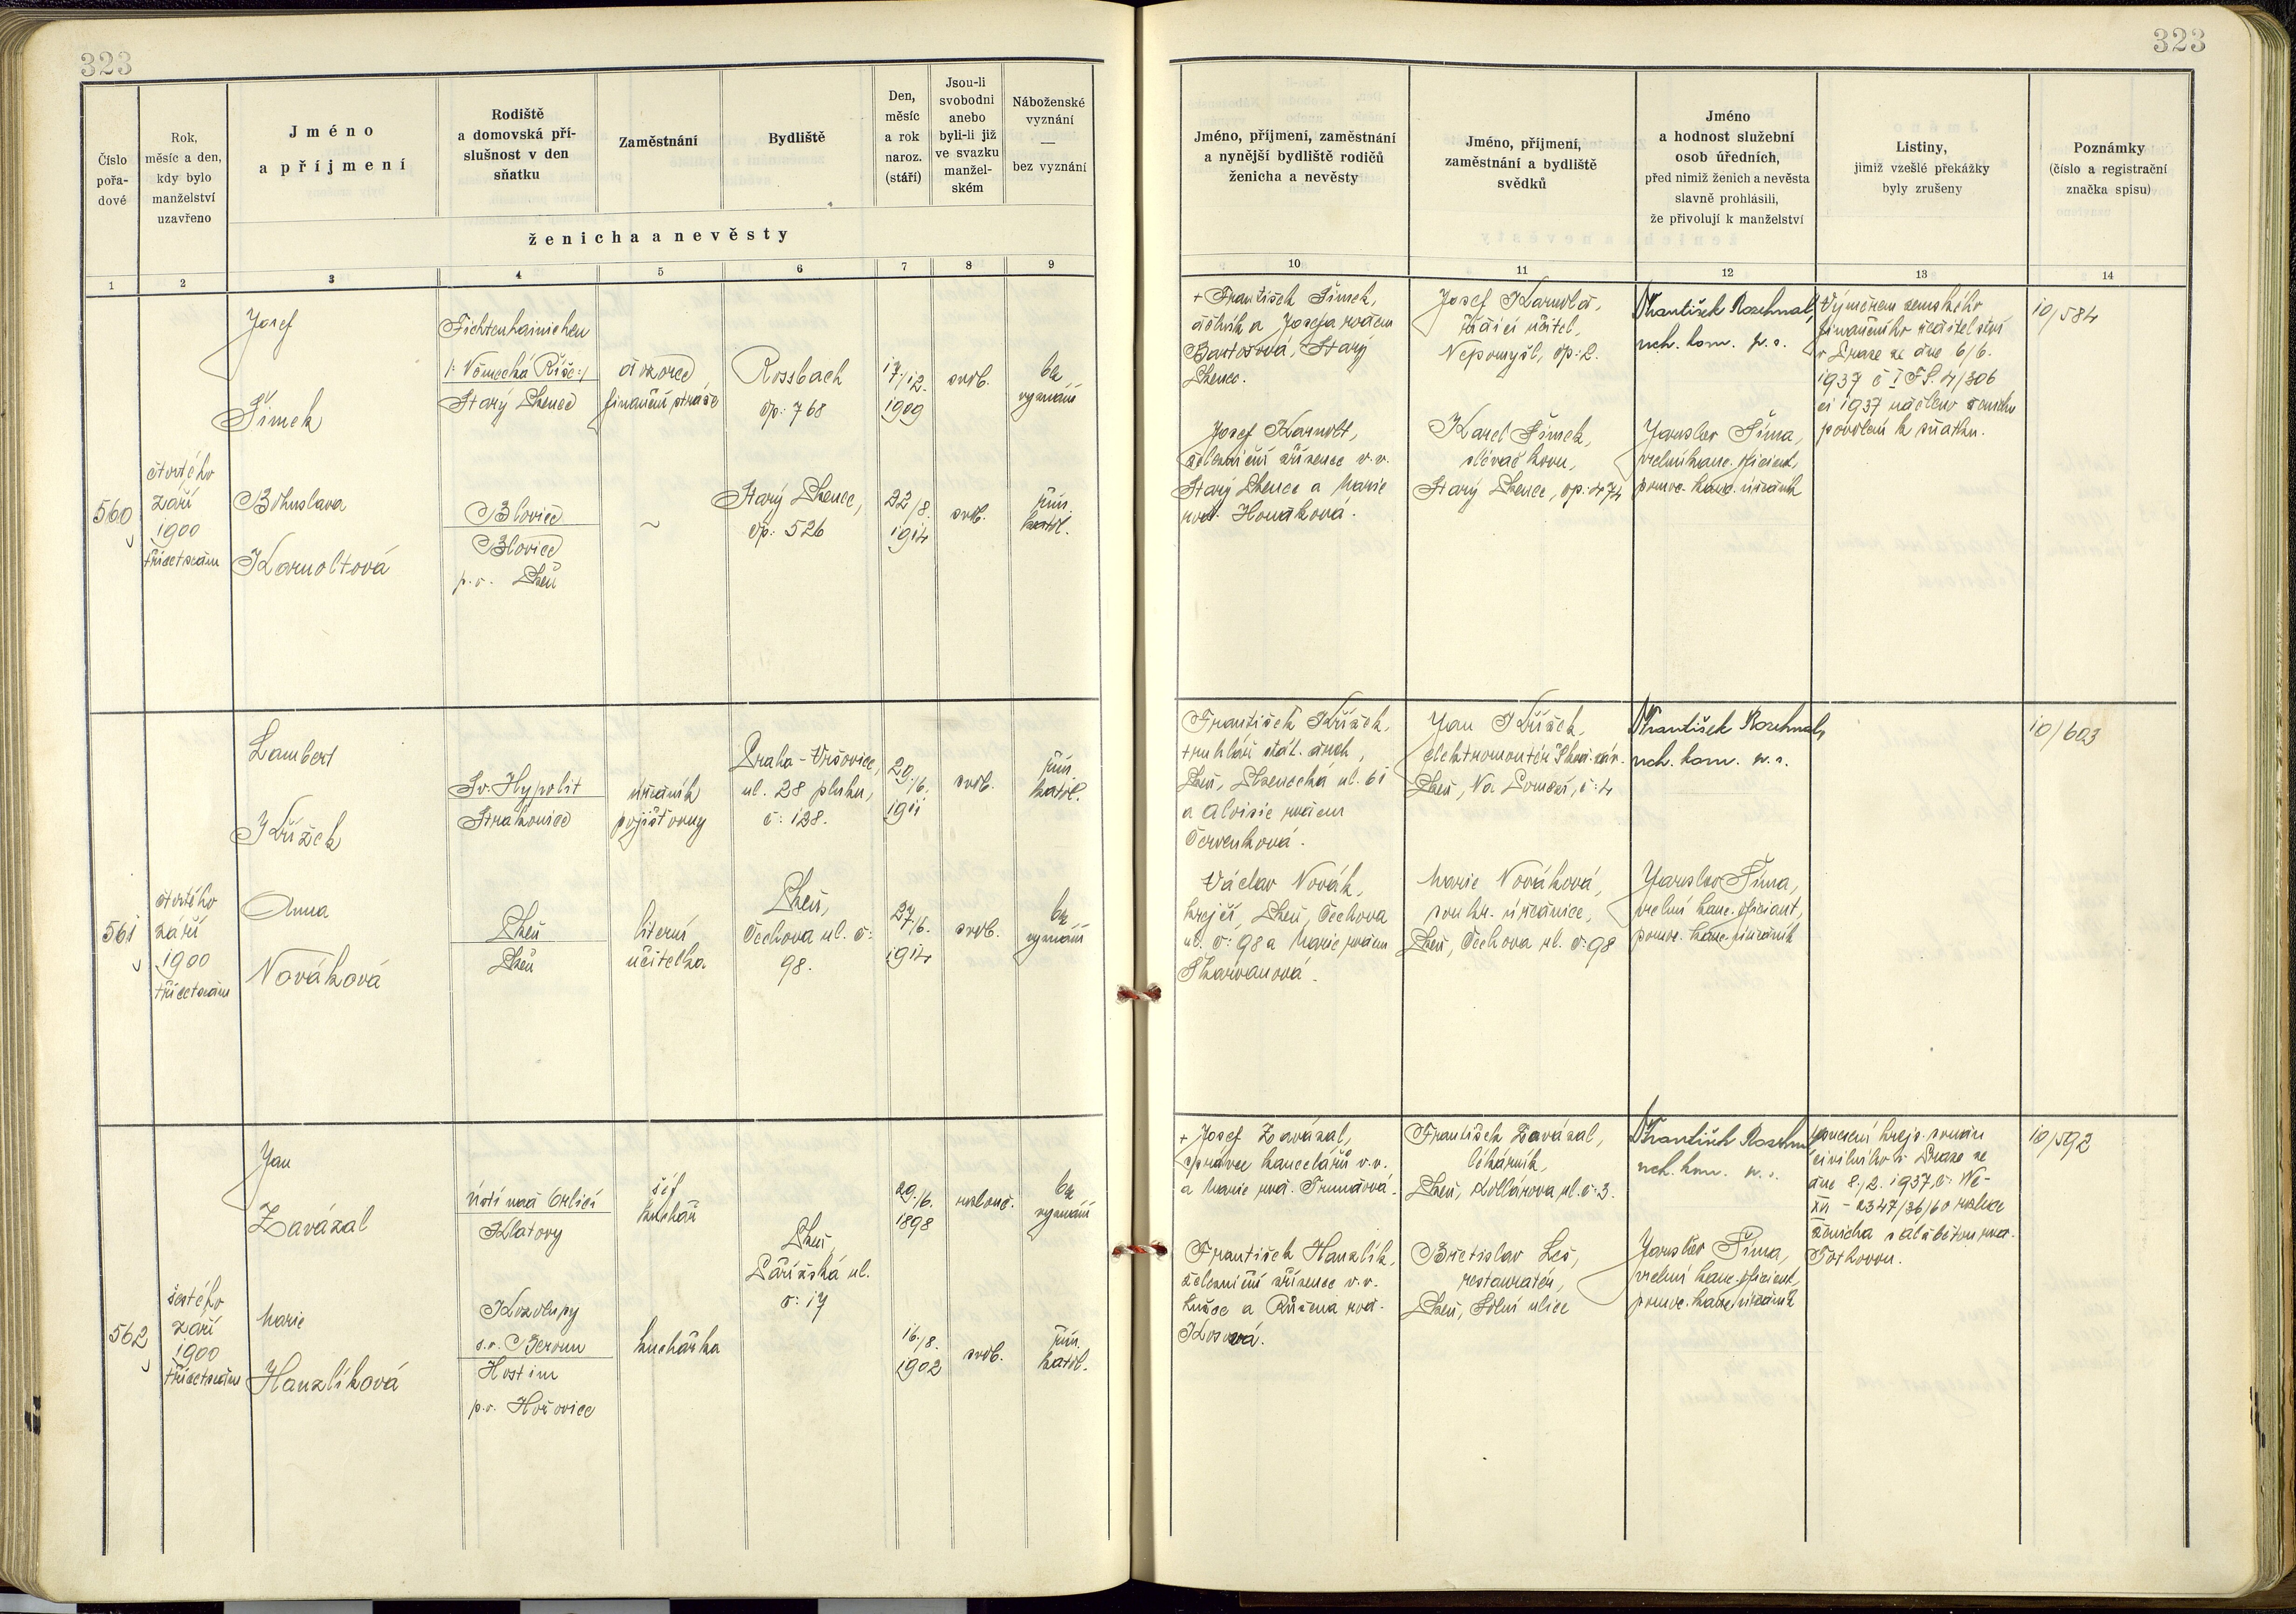 323
323
Číslo
pořa-
dové
Rok,
měsíc a den,
kdy bylo
manželství
uzavřeno
Jméno
a příjmení
Rodiště
a domovská pří-
slušnost v den
sňatku
Zaměstnání
Bydliště
Den,
měsíc
a rok
naroz.
(stáří)
Jsou-li
svobodni
anebo
byli-li již
ve svazku
manžel-
ském
Náboženské
vyznání
—
bez vyznání
ženicha a nevěsty
Jméno, příjmení, zaměstnání
a nynější bydliště rodičů
ženicha a nevěsty
Jméno, příjmení,
zaměstnání a bydliště
svědků
Jméno
a hodnost služební
osob úředních,
před nimiž ženich a nevěsta
slavně prohlásili,
že přivolují k manželství
Listiny,
jimiž vzešlé překážky
byly zrušeny
Poznámky
(číslo a registrační
značka spisu)
1 2 3 4 5 6 7 8 9 10 11 12 13 14
560
čtvrtého
září
1900
třicetsedm
Josef
Šimek
Fichtenhainichen
/: Německá Říše :/
Starý Plzenec
dozorce
finanční stráže
Rossbach
čp: 768
17./12.
1909
svob.
bez
vyznání
Bohuslava
Karnoltová
Blovice
Blovice
p. o. Plzeň
~
Starý Plzenec,
čp: 526
22/8.
1914
svob.
řím.
katol.
+ František Šimek,
dělník a Josefa rozen
Bartošová, Starý
Plzenec.
Josef Karnolt,
železniční zřízenec v.v.
Starý Plzenec a Marie
roz. Nováková.
Josef Karnolt,
řídící učitel,
Nepomyšl, čp: 2.
Karel Šimek,
slévač kovu,
Starý Plzenec, čp: 474
František Rozehnal,
rch. kom. v. r.
Jaroslav Šíma,
vrchní kanc. oficiant,
pomoc. kanc. úředník
Výměrem zemského
finančního ředitelství
v Praze ze dne 6/6.
1937 č I FS. 4/306
ei 1937 uděleno ženichu
povolení k sňatku.
10/584
561
čtvrtého
září
1900
třicetsedm
Lambert
Křížek
Sv. Hypolit
Strakonice
úředník
pojišťovny
Praha - Vršovice,
ul. 28 pluku,
č: 128.
29./6.
1911
svob.
řím.
katol.
Anna
Nováková
Plzeň
Plzeň
literní
učitelka
Plzeň,
Čechova ul. č:
98.
27./6.
1914
svob.
bez
vyznání
František Křížek,
truhlář stát. drah,
Plzeň, Plzenecká ul. 61
a Aloisie rozen
Červenková.
Václav Novák,
krejčí, Plzeň, Čechova
ul. č: 98 a Marie rozen
Skarvanová.
Jan Křížek,
elektromontér Škod. záv.
Plzeň, Na Pomezí, č: 4
Marie Nováková,
soukr. úřednice,
Plzeň, Čechova ul. č: 98
František Rozehnal,
rch. kom. v. r.
Jaroslav Šíma,
vrchní kanc. oficiant,
pomoc. kanc. úředník
10/603
562
šestého
září
1900
třicetsedm
Jan
Zavázal
Ústí nad Orlicí
Klatovy
šéf
kuchař
Plzeň,
Pařížská ul.
č: 17
29./6.
1898
rozlouč.
bez
vyznání
Marie
Hanzlíková
Kozolupy
s. o. Beroun
Hostim
p. o. Hořovice
kuchařka
16./8.
1902
svob.
řím.
katol.
+ Josef Zavázal,
správce kanceláří v.v.
a Marie roz.
František Hanzlík,
železniční zřízenec v.v.
a Růžena roz.
František Zavázal,
lékárník,
Plzeň, Kollárova ul. č: 3.
Břetislav Leš,
restauratér,
Plzeň, Solní ulice
František
rch. kom. v. r.
Jaroslav Šíma,
vrchní kanc. oficiant,
pomoc. kanc. úředník
krajs. soudu
civilního v Praze ze
dne 8./2. 1937, č:
XII - 2347/36/60 rozluka
ženicha s Alžbětou roz.
10/592